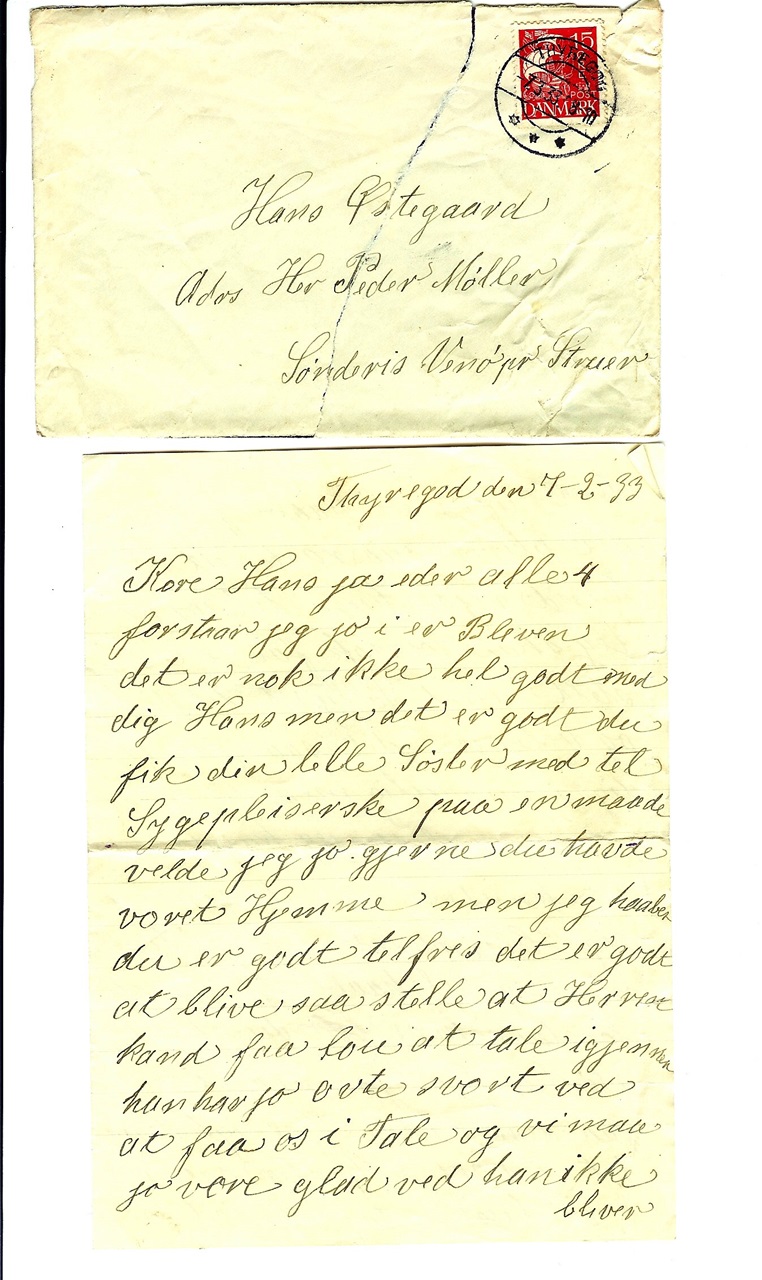 15
DANMARK
Hans Østegaard
Adrs Hr Peder Møller
Sønderis Venø pr Struer
Thyregod den 7-2-33
Kere Hans ja eder alle 4
forstaar jeg jo i er Bleven
det er nok ikke hel godt med
dig Hans men det er godt du
fik din lelle Söster med tel
Sygepleiserske paa en maade
velde jeg jo gjerne du havde
voret Hjemme men jeg haaber
du er godt telfres det er godt
at blive saa stelle at Herren
kand faa Lou at tale igjennem
han har jo ovte svort ved
at faa os i Tale og vi maa
jo vere glad ved han ikke
bliver